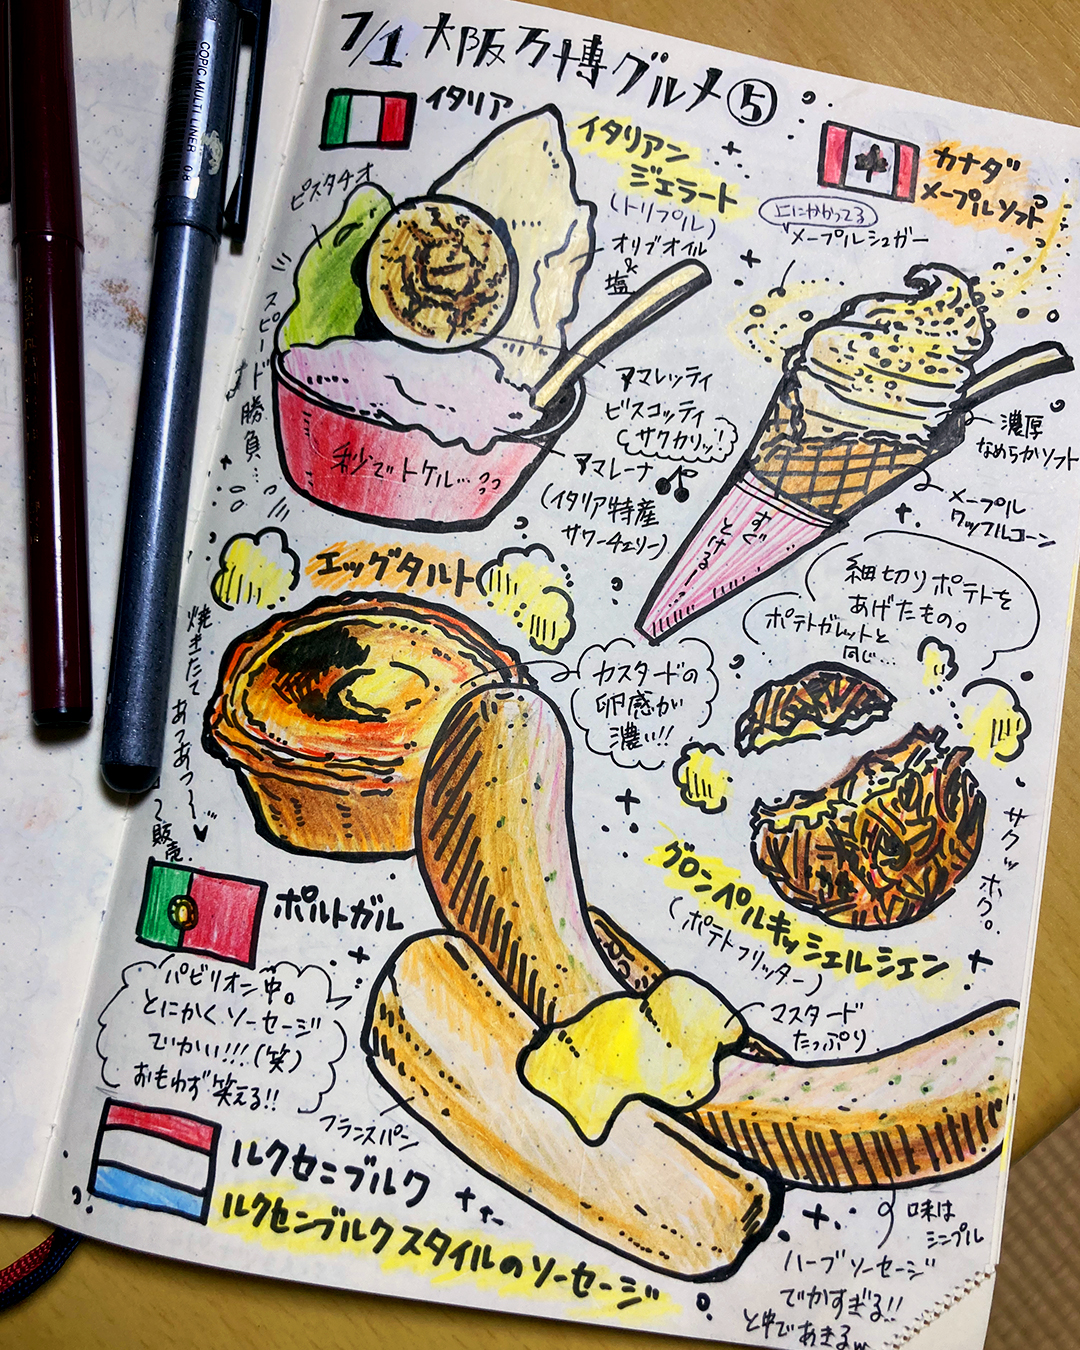 7/1 大阪万博グルメ⑤
イタリア
イタリアン
ジェラート
(トリプル)
ピスタチオ
オリブオイル
&
塩
アマレッティ
ビスコッティ
サクカリッ!
アマレーナ
(イタリア特産
サワーチェリー)
スピード勝負…
秒でトケル…
カナダ
メープルソフト
上にかかってる
メープルシュガー
濃厚
なめらかソフト
メープル
ワッフルコーン
すぐ
とける
エッグタルト
焼きたて あつあつ〜♥
販売
カスタードの
卵感が
濃い!!
ポルトガル
細切りポテトを
あげたもの。
ポテトガレットと
同じ…
サクッホク。
グロンペルキッシェルシェン
(ポテトフリッター)
マスタード
たっぷり
パビリオン中。
とにかくソーセージ
でかい!!!(笑)
おもわず笑える!!
フランスパン
ルクセニブルク
ルクセンブルクスタイルのソーセージ
味は
シンプル
ハーブソーセージ
でかすぎる!!
と中であきるw
COPIC MULTI LINER 0.8